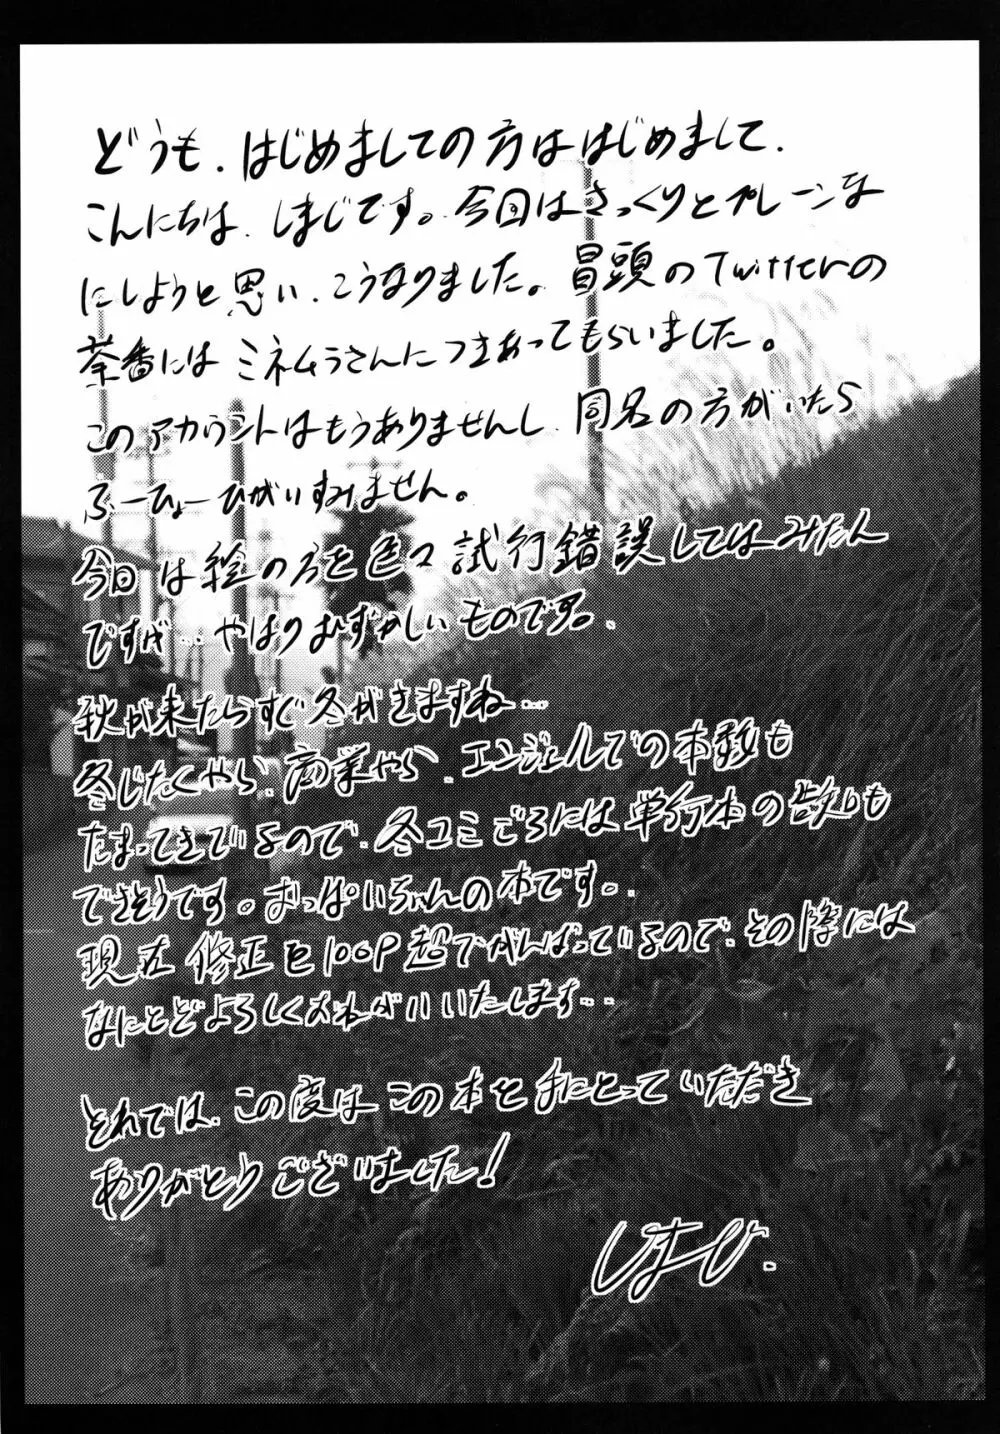 どうも、はじめましての方ははじめまして、
こんにちは、しまじです。今回はさっくりとプレーンな
にしようと思い、こうなりました。冒頭のTwitterの
茶番にはミネムラさんにつきあってもらいました。
このアカウントはもうありませんし、同名の方がいたら
ふーひょーひがいすみません。
今回は絵の方を色々試行錯誤してはみたん
ですが…やはりむずかしいものです。
秋が来たらすぐ冬がきますね…
冬じたくやら、商業やら、エンジェルでの本数も
たまってきているので、冬コミごろには単行本の告知も
できそうです。おっぱいちゃんの本です。
現在修正を100P超でがんばっているので、その際には
なにとどよろしくおねがいいたします…
それでは、この度はこの本を手にとっていただき
ありがとうございました!